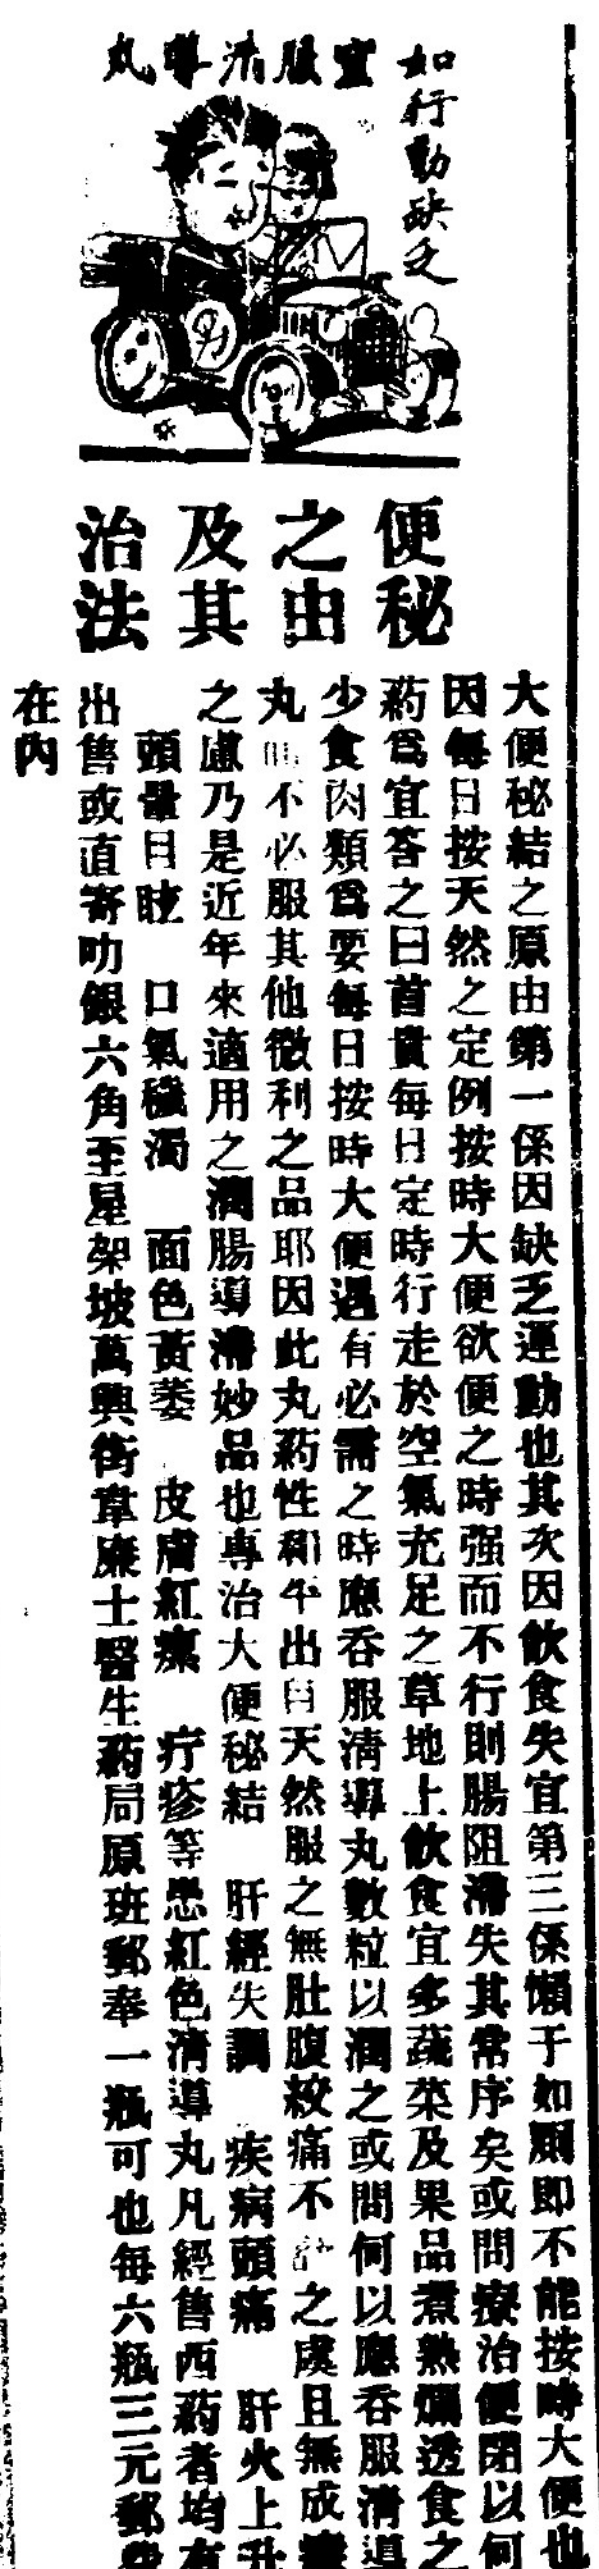 如行動缺乏
宜服清導丸
便秘
之由
及其
治法
大便秘結之原由第一係因缺乏運動也其次因飲食失宜第三係懶于如厠即不能按時大便也
因每日按天然之定例按時大便欲便之時强而不行則腸阻滯失其常序矣或問療治便閉以何
葯爲宜答之曰首貴每日定時行走於空氣充足之草地上飲食宜多蔬菜及果品煮熟爛透食之
少食肉類爲要每日按時大便遇有必需之時應吞服清導丸數粒以潤之或問何以應吞服清導
丸 不必服其他微利之品耶因此丸葯性和平出自天然服之無肚腹絞痛不 之虞且無成癮
之慮乃是近年來適用之潤腸導滯妙品也專治大便秘結 肝經失調 疾病頭痛 肝火上升
頭暈目眩 口氣穢濁 面色黃萎 皮膚紅瘰 疔疹等患紅色清導丸凡經售西葯者均有
出售或直寄叻銀六角至星架坡萬興街韋廉士醫生葯局原班郵奉一瓶可也每六瓶三元郵費
在內